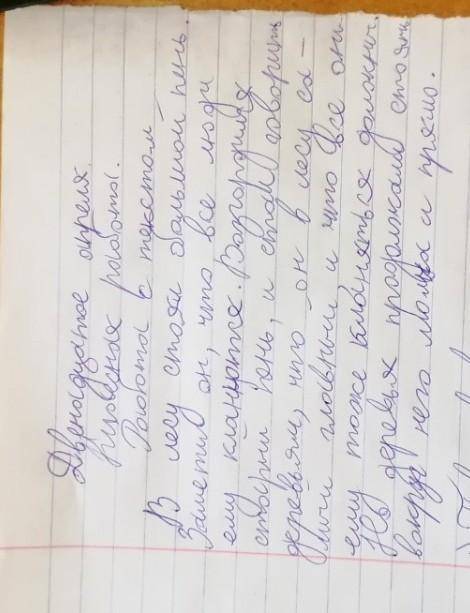 Двенадцатое апреля.
Классная работа.
Работа с текстом
В лесу стоял большой пень.
Заметил он, что все люди
ему кланяются. Возгордился
старый пень, и стал говорить
деревьям, что он в лесу са-
мый главный и что все они
ему тоже кланяться должны.
Но деревья продолжали стоять
вокруг него молча и прямо.